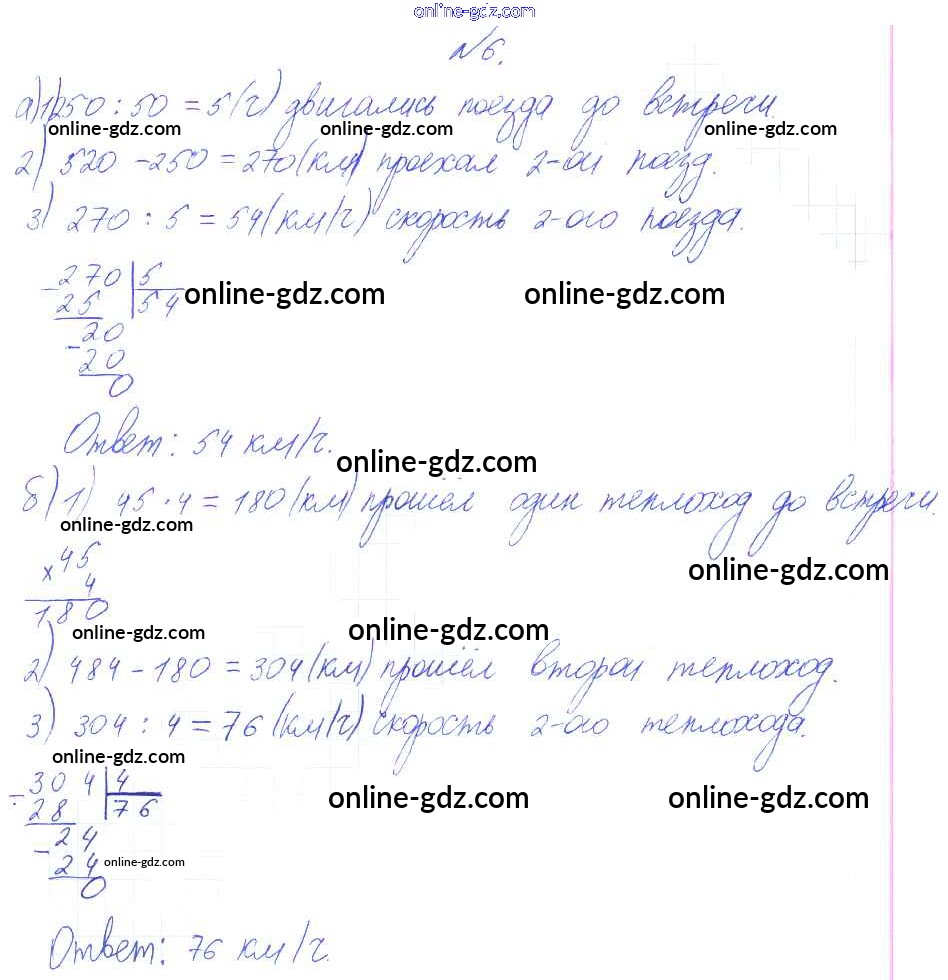 online-gdz.com
№6.
а) 1) 250 : 50 = 5 (ч) двигались поезда до встречи.
online-gdz.com online-gdz.com online-gdz.com
2) 520 - 250 = 270 (км) проехал 2-ой поезд.
3) 270 : 5 = 54 (км/ч) скорость 2-ого поезда.
- 270 | 5
25 | 54
online-gdz.com online-gdz.com
- 20
20
0
Ответ: 54 км/ч.
online-gdz.com
б) 1) 45 · 4 = 180 (км) прошёл один теплоход до встречи.
online-gdz.com
× 45
4
online-gdz.com
180
online-gdz.com online-gdz.com
2) 484 - 180 = 304 (км) прошёл второй теплоход.
3) 304 : 4 = 76 (км/ч) скорость 2-ого теплохода.
online-gdz.com
- 304 | 4
28 | 76
online-gdz.com online-gdz.com
- 24
24
online-gdz.com
0
Ответ: 76 км/ч.